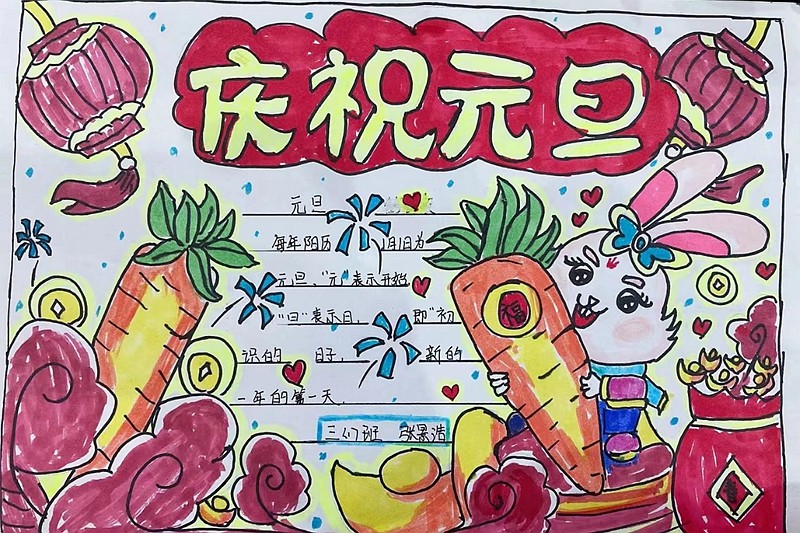 庆祝元旦
元旦
每年阳历 1月1日为
元旦,"元"表示开始,
"旦"表示日, 即"初
识的 日子, 新的
一年的第一天.
三(1)班 张景浩
福